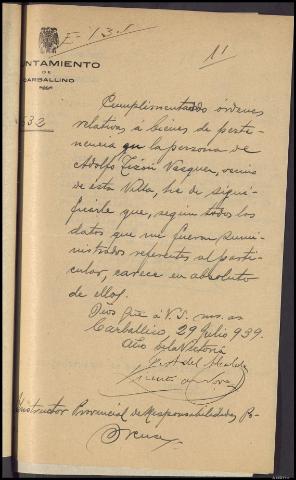 E-13.1
11
AYUNTAMIENTO
DE
CARBALLINO
632
Cumplimentados órdenes
relativas á bienes de perte-
nencia en la persona de
Adolfo Tizón Vazquez, vecino
de esta Villa, he de signi-
ficarle que, según todos los
datos que me fueron sumi-
nistrados referentes al parti-
cular, carece en absoluto
de ellos.
Dios gue á V.S. ms. as
Carballino 29 Julio 939.
Año de la Victoria
P. A. del Alcalde
Vicente
Instructor Provincial de Responsabilidades Po-
Orense